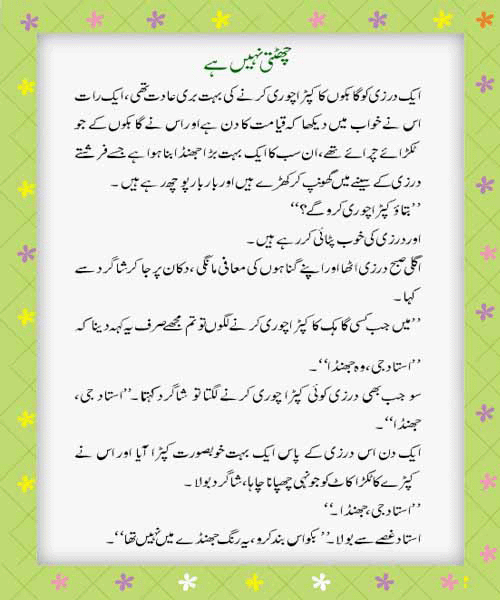 چھٹتی نہیں ہے
ایک درزی کو گاہکوں کا کپڑا چوری کرنے کی بہت بری عادت تھی، ایک رات
اس نے خواب میں دیکھا کہ قیامت کا دن ہے اور اس نے گاہکوں کے جو
ٹکڑائے چرائے تھے، ان سب کا ایک بہت بڑا جھنڈا بنا ہوا ہے جسے فرشتے
درزی کے سینے میں گھونپ کر کھڑے ہیں اور بار بار پوچھ رہے ہیں ۔
’’بتاؤ کپڑا چوری کرو گے؟‘‘
اور درزی کی خوب پٹائی کر رہے ہیں ۔
اگلی صبح درزی اٹھا اور اپنے گناہوں کی معافی مانگی ، دکان پر جا کر شاگرد سے
کہا ۔
’’میں جب کسی گاہک کا کپڑا چوری کرنے لگوں تو تم مجھے صرف یہ کہہ دینا کہ
’’استاد جی، وہ جھنڈا‘‘۔
سو جب بھی درزی کوئی کپڑا چوری کرنے لگتا تو شاگرد کہتا۔’’استاد جی،
جھنڈا‘‘۔
ایک دن اس درزی کے پاس ایک بہت خوبصورت کپڑا آیا اور اس نے
کپڑے کا ٹکڑا کاٹ کو جونہی چھپانا چاہا، شاگرد بولا ۔
’’استاد جی، جھنڈا۔‘‘
استاد غصے سے بولا۔’’بکواس بند کرو، یہ رنگ جھنڈے میں نہیں تھا‘‘۔